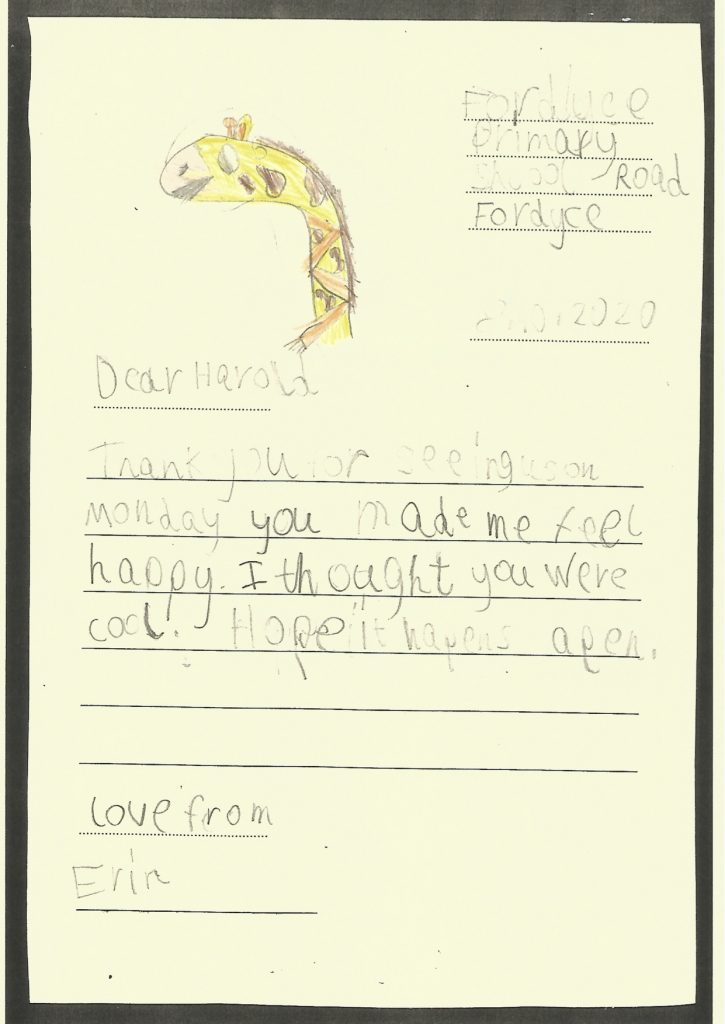 Fordyce
Primary
Road
Fordyce
2020
Dear Harold
Thank you for seeing us on
monday you made me feel
happy. I thought you were
cool! Hope it hapens agen.
love from
Erin